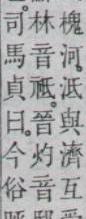 槐河。泜與濟互
林音祗。晉灼音
司馬貞曰。今俗